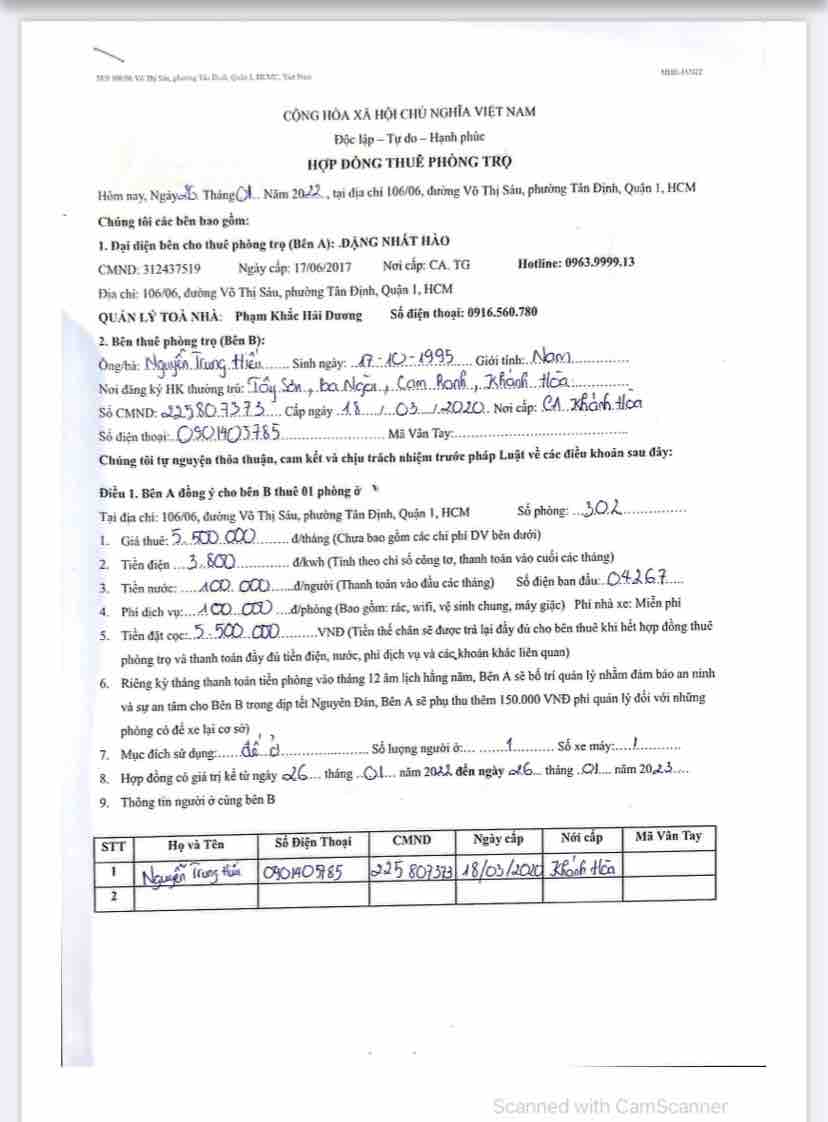 106/06 Võ Thị Sáu, phường Tân Định, Quận 1, HCMC, Viet Nam
CỘNG HÒA XÃ HỘI CHỦ NGHĨA VIỆT NAM
Độc lập – Tự do – Hạnh phúc
HỢP ĐỒNG THUÊ PHÒNG TRỌ
Hôm nay, Ngày 26 Tháng 01 Năm 2022, tại địa chỉ 106/06, đường Võ Thị Sáu, phường Tân Định, Quận 1, HCM
Chúng tôi các bên bao gồm:
1. Đại diện bên cho thuê phòng trọ (Bên A): .ĐẶNG NHẤT HÀO
CMND: 312437519 Ngày cấp: 17/06/2017 Nơi cấp: CA. TG Hotline: 0963.9999.13
Địa chỉ: 106/06, đường Võ Thị Sáu, phường Tân Định, Quận 1, HCM
QUẢN LÝ TOÀ NHÀ: Phạm Khắc Hải Dương Số điện thoại: 0916.560.780
2. Bên thuê phòng trọ (Bên B):
Ông/bà: Nguyễn Trung Hiếu Sinh ngày: 17-10-1995 Giới tính: Nam
Nơi đăng ký HK thường trú: Tây Sơn, Ba Ngòi, Cam Ranh, Khánh Hòa
Số CMND: 225807373 Cấp ngày 18/03/2020. Nơi cấp: CA Khánh Hòa
Số điện thoại: 0901403785 Mã Vân Tay:
Chúng tôi tự nguyện thỏa thuận, cam kết và chịu trách nhiệm trước pháp Luật về các điều khoản sau đây:
Điều 1. Bên A đồng ý cho bên B thuê 01 phòng ở
Tại địa chỉ: 106/06, đường Võ Thị Sáu, phường Tân Định, Quận 1, HCM Số phòng: 302
1. Giá thuê: 5.500.000 đ/tháng (Chưa bao gồm các chi phí DV bên dưới)
2. Tiền điện 3.800 đ/kwh (Tính theo chỉ số công tơ, thanh toán vào cuối các tháng)
3. Tiền nước: 100.000 đ/người (Thanh toán vào đầu các tháng) Số điện ban đầu: 04267
4. Phí dịch vụ: 100.000 đ/phòng (Bao gồm: rác, wifi, vệ sinh chung, máy giặt) Phí nhà xe: Miễn phí
5. Tiền đặt cọc: 5.500.000 VNĐ (Tiền thế chân sẽ được trả lại đầy đủ cho bên thuê khi hết hợp đồng thuê
phòng trọ và thanh toán đầy đủ tiền điện, nước, phí dịch vụ và các khoản khác liên quan)
6. Riêng kỳ tháng thanh toán tiền phòng vào tháng 12 âm lịch hằng năm, Bên A sẽ bố trí quản lý nhằm đảm bảo an ninh
và sự an tâm cho Bên B trong dịp tết Nguyên Đán, Bên A sẽ phụ thu thêm 150.000 VNĐ phí quản lý đối với những
phòng có để xe lại cơ sở)
7. Mục đích sử dụng: để ở Số lượng người ở: 1 Số xe máy: 1
8. Hợp đồng có giá trị kể từ ngày 26 tháng 01 năm 2022 đến ngày 26 tháng 01 năm 2023
9. Thông tin người ở cùng bên B
STT Họ và Tên Số Điện Thoại CMND Ngày cấp Nơi cấp Mã Vân Tay
1 Nguyễn Trung Hiếu 225 807373 18/03/2020 Khánh Hòa
2
Scanned with CamScanner